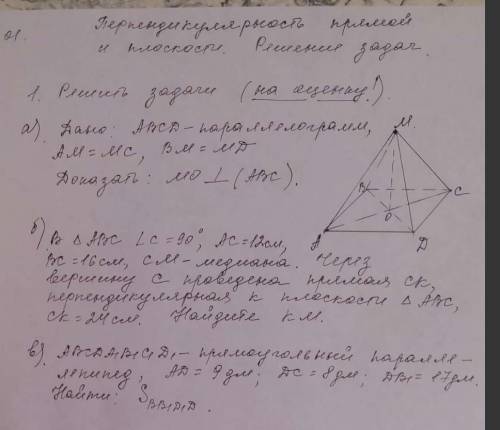 Перпендикулярность прямой
и плоскости. Решение задач.
1. Решить задачи (на оценку!).
а) Дано: ABCD-параллелограмм,
AM=MC, BM=MD
Доказать: MO⊥(ABC).
M
B
C
O
A
D
б) В △ABC ∠C=90°, AC=12см,
BC=16см, CM-медиана. Через
вершину C проведена прямая CK,
перпендикулярная к плоскости △ABC,
CK=24см. Найдите KM.
в) ABCDA₁B₁C₁D₁-прямоугольный паралле-
лепипед, AD=9дм; DC=8дм; DB₁=17дм.
Найти: S_BB₁D₁D.